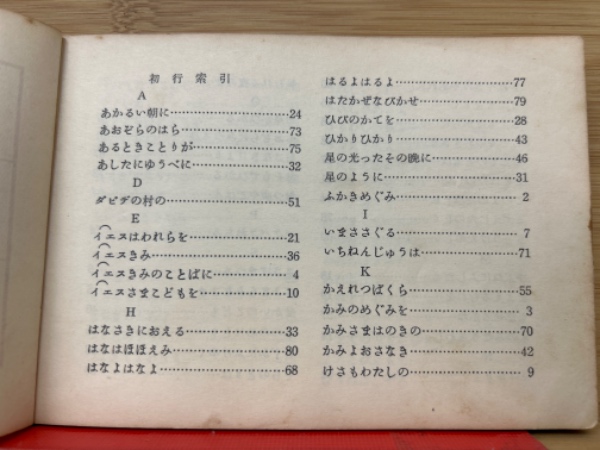 初行索引
A
あかるい朝に……………………24
あおぞらのはら…………………73
あるときことりが………………75
あしたにゆうべに………………32
D
ダビデの村の……………………51
E
イエスはわれらを………………21
イエスきみ………………………36
イエスきみのことばに…………4
イエスさまこどもを……………10
H
はなさきにおえる………………33
はなはほほえみ…………………80
はなよはなよ……………………68
はるよはるよ……………………77
はたかぜなびかせ………………79
ひびのかてを……………………28
ひかりひかり……………………43
星の光ったその晩に……………46
星のように………………………31
ふかきめぐみ……………………2
I
いまささぐる……………………7
いちねんじゅうは………………71
K
かえれつばくら…………………55
かみのめぐみを…………………3
かみさまはのきの………………70
かみよおさなき…………………42
けさもわたしの…………………9